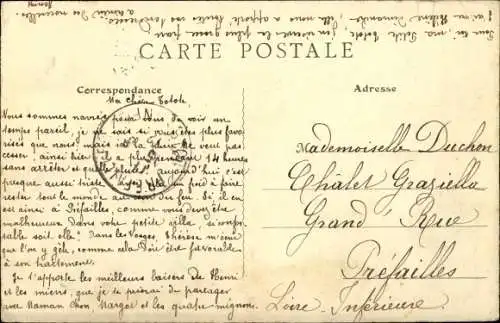 CARTE POSTALE
Correspondance
Adresse
Ma chère Totote
Nous sommes navrés pour vous de voir un
temps pareil, je ne sais si vous êtes plus favorisés
que nous mais la pluie ne veut pas
cesser, ainsi hier il a plu pendant 14 heures
sans arrêter et quelle pluie! aujourd'hui c'est
presque aussi triste et froid à faire
rester tout le monde au coin du feu. Si il en
est ainsi à Préfailles, comme vous devez être
malheureux dans votre petite villa si confortable
soit elle! Dans les Vosges, Thérèse m'écrit
que l'on y gèle, comme cela doit être favorable
à son traitement.
Je t'apporte les meilleurs baisers de Henri
et les miens, que je te prierai de partager
avec Maman Chon, Margot et les quatre mignons.
Mademoiselle Duchon
Châlet Graziella
Grand' Rue
Préfailles
Loire-Inférieure